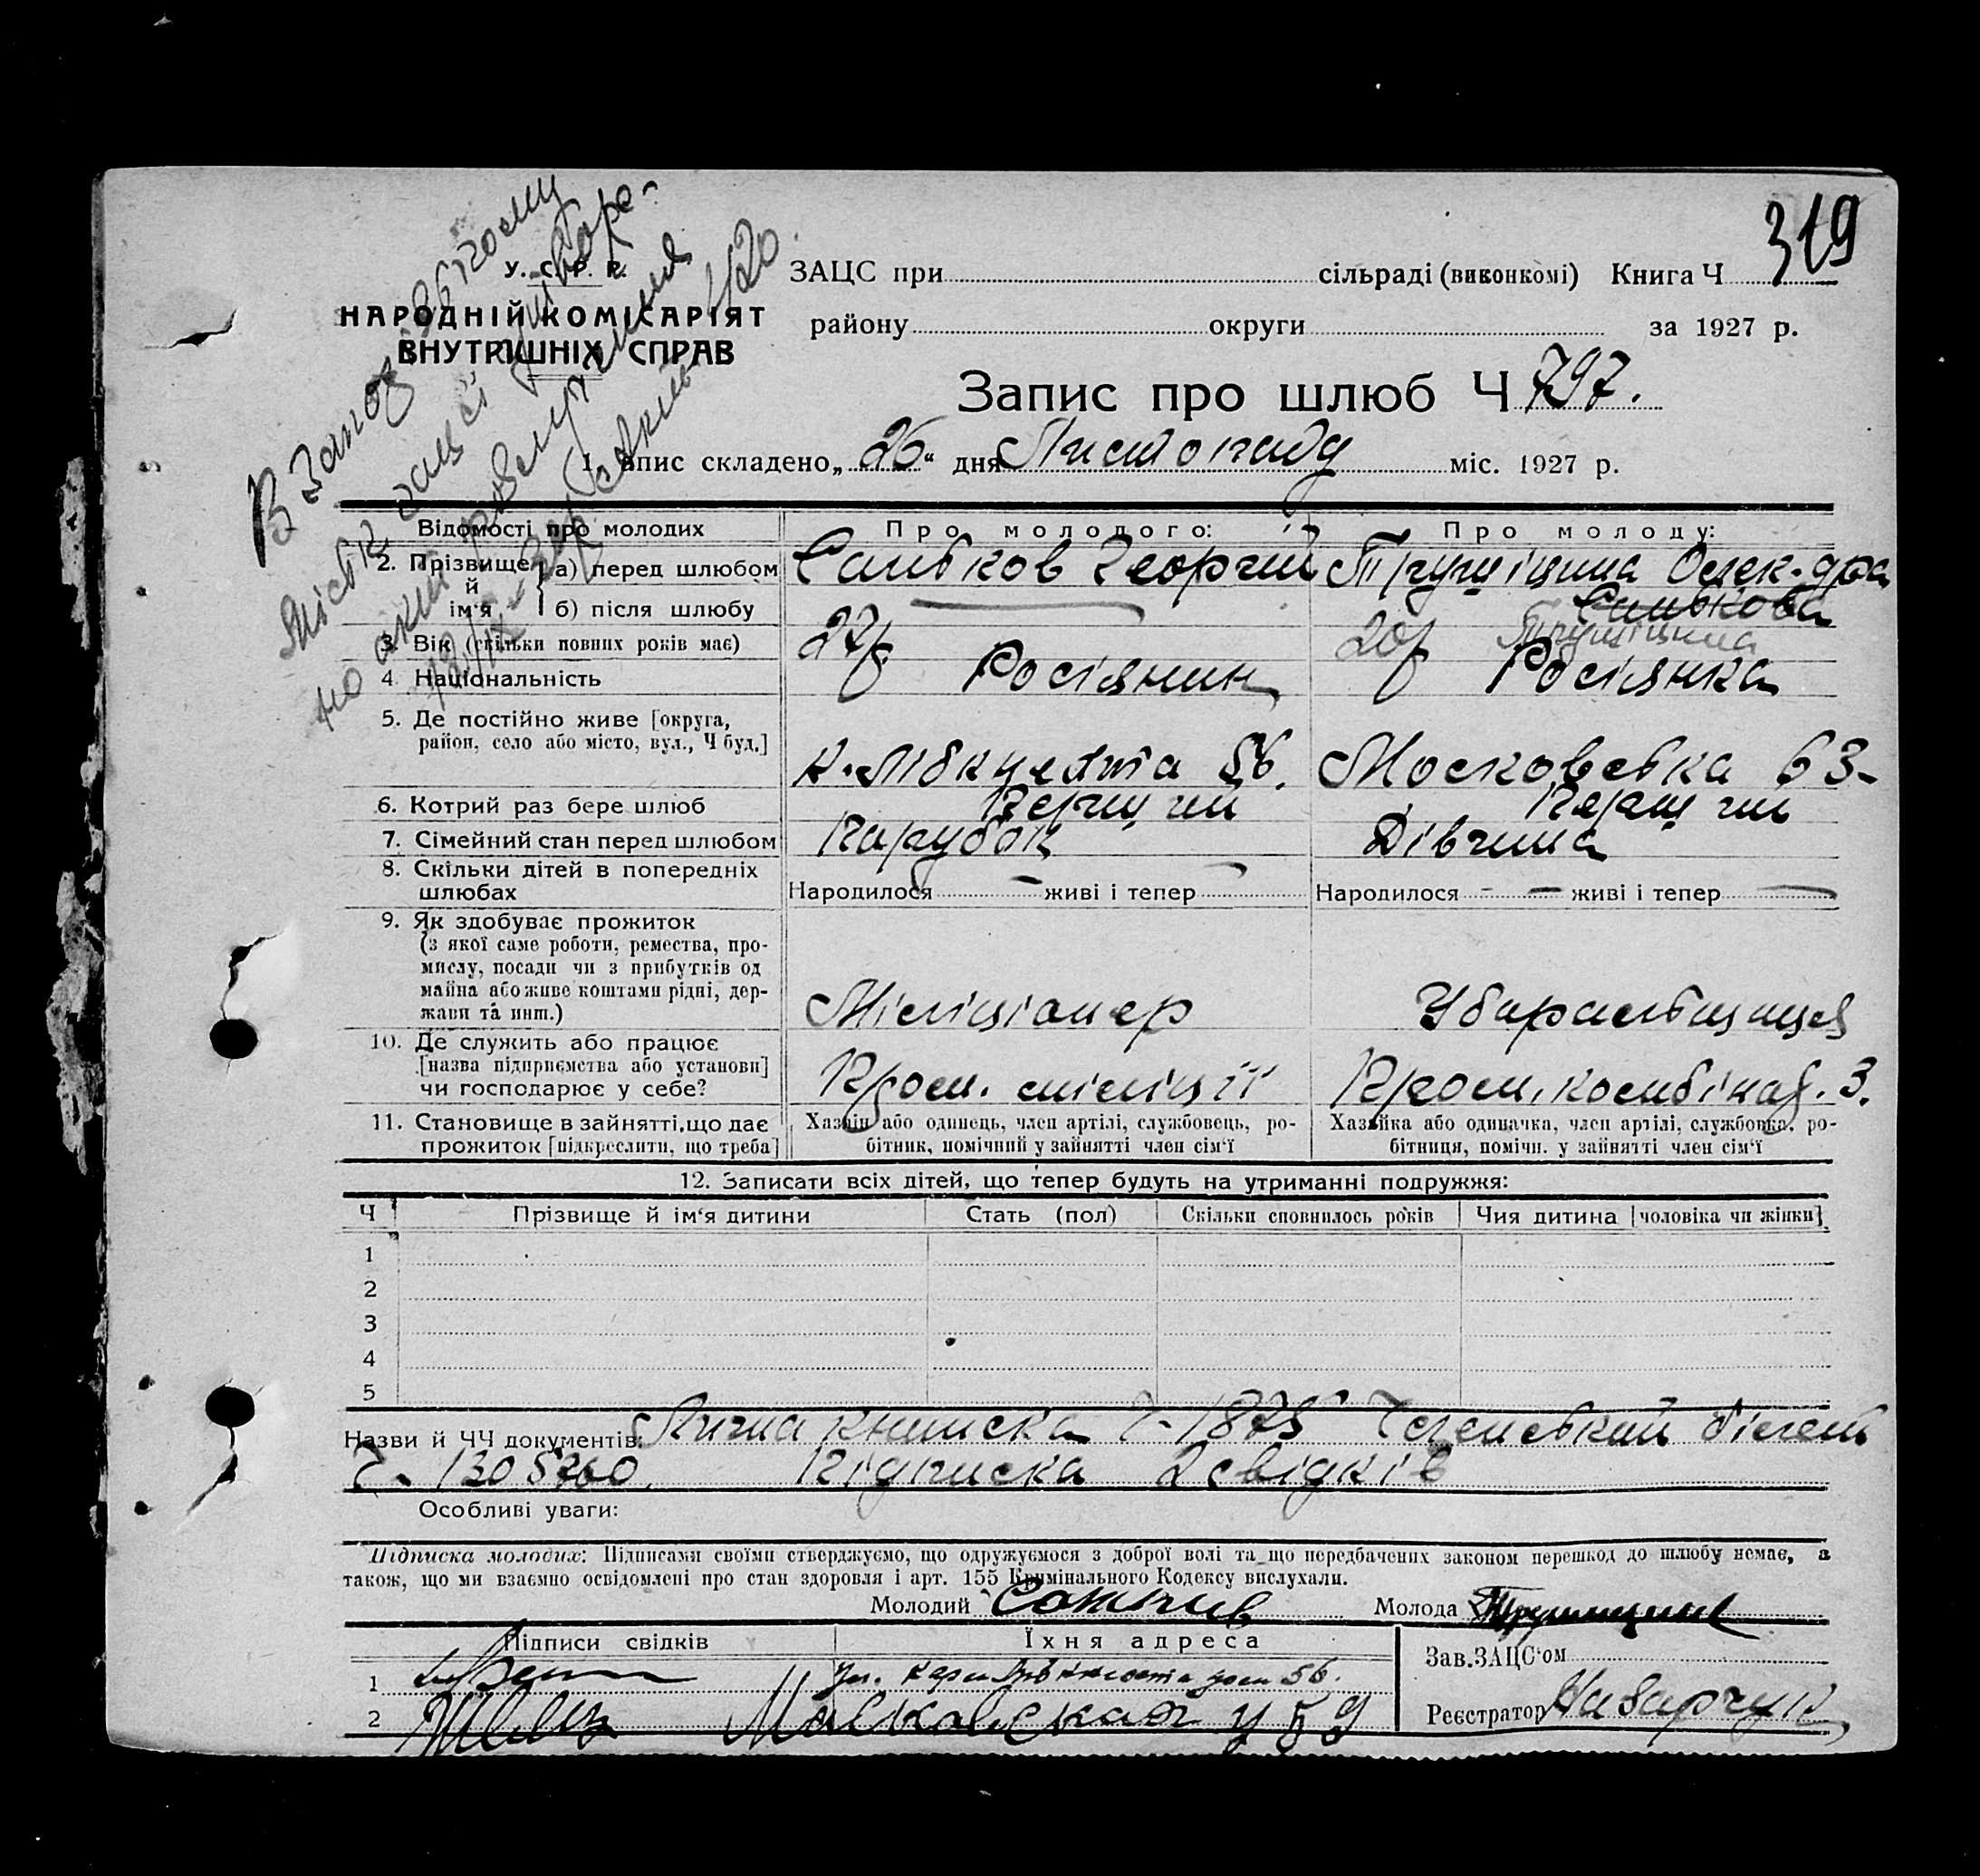 319
У. С. Р. Р.
НАРОДНІЙ КОМІСАРІЯТ
ВНУТРІШНІХ СПРАВ
ЗАЦС при сільраді (виконкомі) Книга Ч
району округи за 1927 р.
Запис про шлюб Ч 797.
1. Запис складено „26“ дня Листопаду міс. 1927 р.
Відомості про молодих
Про молодого:
Про молоду:
2. Прізвище й ім'я
а) перед шлюбом
Георгій
Олек-дра
б) після шлюбу
3. Вік (скільки повних років має)
27 р
20 р
4. Національність
Росіянин
Росіянка
5. Де постійно живе [округа,
район, село або місто, вул., Ч буд.]
К. Лібкнехта 56.
Московська 63
6. Котрий раз бере шлюб
Перший
Перший
7. Сімейний стан перед шлюбом
Парубок
Дівчина
8. Скільки дітей в попередніх
шлюбах
Народилося — живі і тепер —
Народилося — живі і тепер —
9. Як здобуває прожиток
(з якої саме роботи, ремества, про-
мислу, посади чи з прибутків од
майна або живе коштами рідні, дер-
жави та инш.)
Міліціонер
Убиральщиця
10. Де служить або працює
[назва підприємства або установи]
чи господарює у себе?
Пром. міліції
Пром. комбінат. 3.
11. Становище в зайнятті, що дає
прожиток [підкреслити, що треба]
Хазяїн або одинець, член артілі, службовець, ро-
бітник, помічний у зайнятті член сім'ї
Хазяйка або одиначка, член артілі, службовка, ро-
бітниця, помічн. у зайнятті член сім'ї
12. Записати всіх дітей, що тепер будуть на утриманні подружжя:
Ч
Прізвище й ім'я дитини
Стать (пол)
Скільки сповнилось років
Чия дитина [чоловіка чи жінки]
1
2
3
4
5
Назви й ЧЧ документів: Лична книжка Ч-1875 Членський білет
Ч. Підписка 2 свідків
Особливі уваги:
Підписка молодих: Підписами своїми стверджуємо, що одружуємося з доброї волі та що передбачених законом перешкод до шлюбу немає, а
також, що ми взаємно освідомлені про стан здоровля і арт. 155 Кримінального Кодексу вислухали.
Молодий
Молода
Підписи свідків
Їхня адреса
1 ул. Карл Либкнехта дом 56.
2 Московская у 59
Зав. ЗАЦС'ом
Реєстратор Назарчук